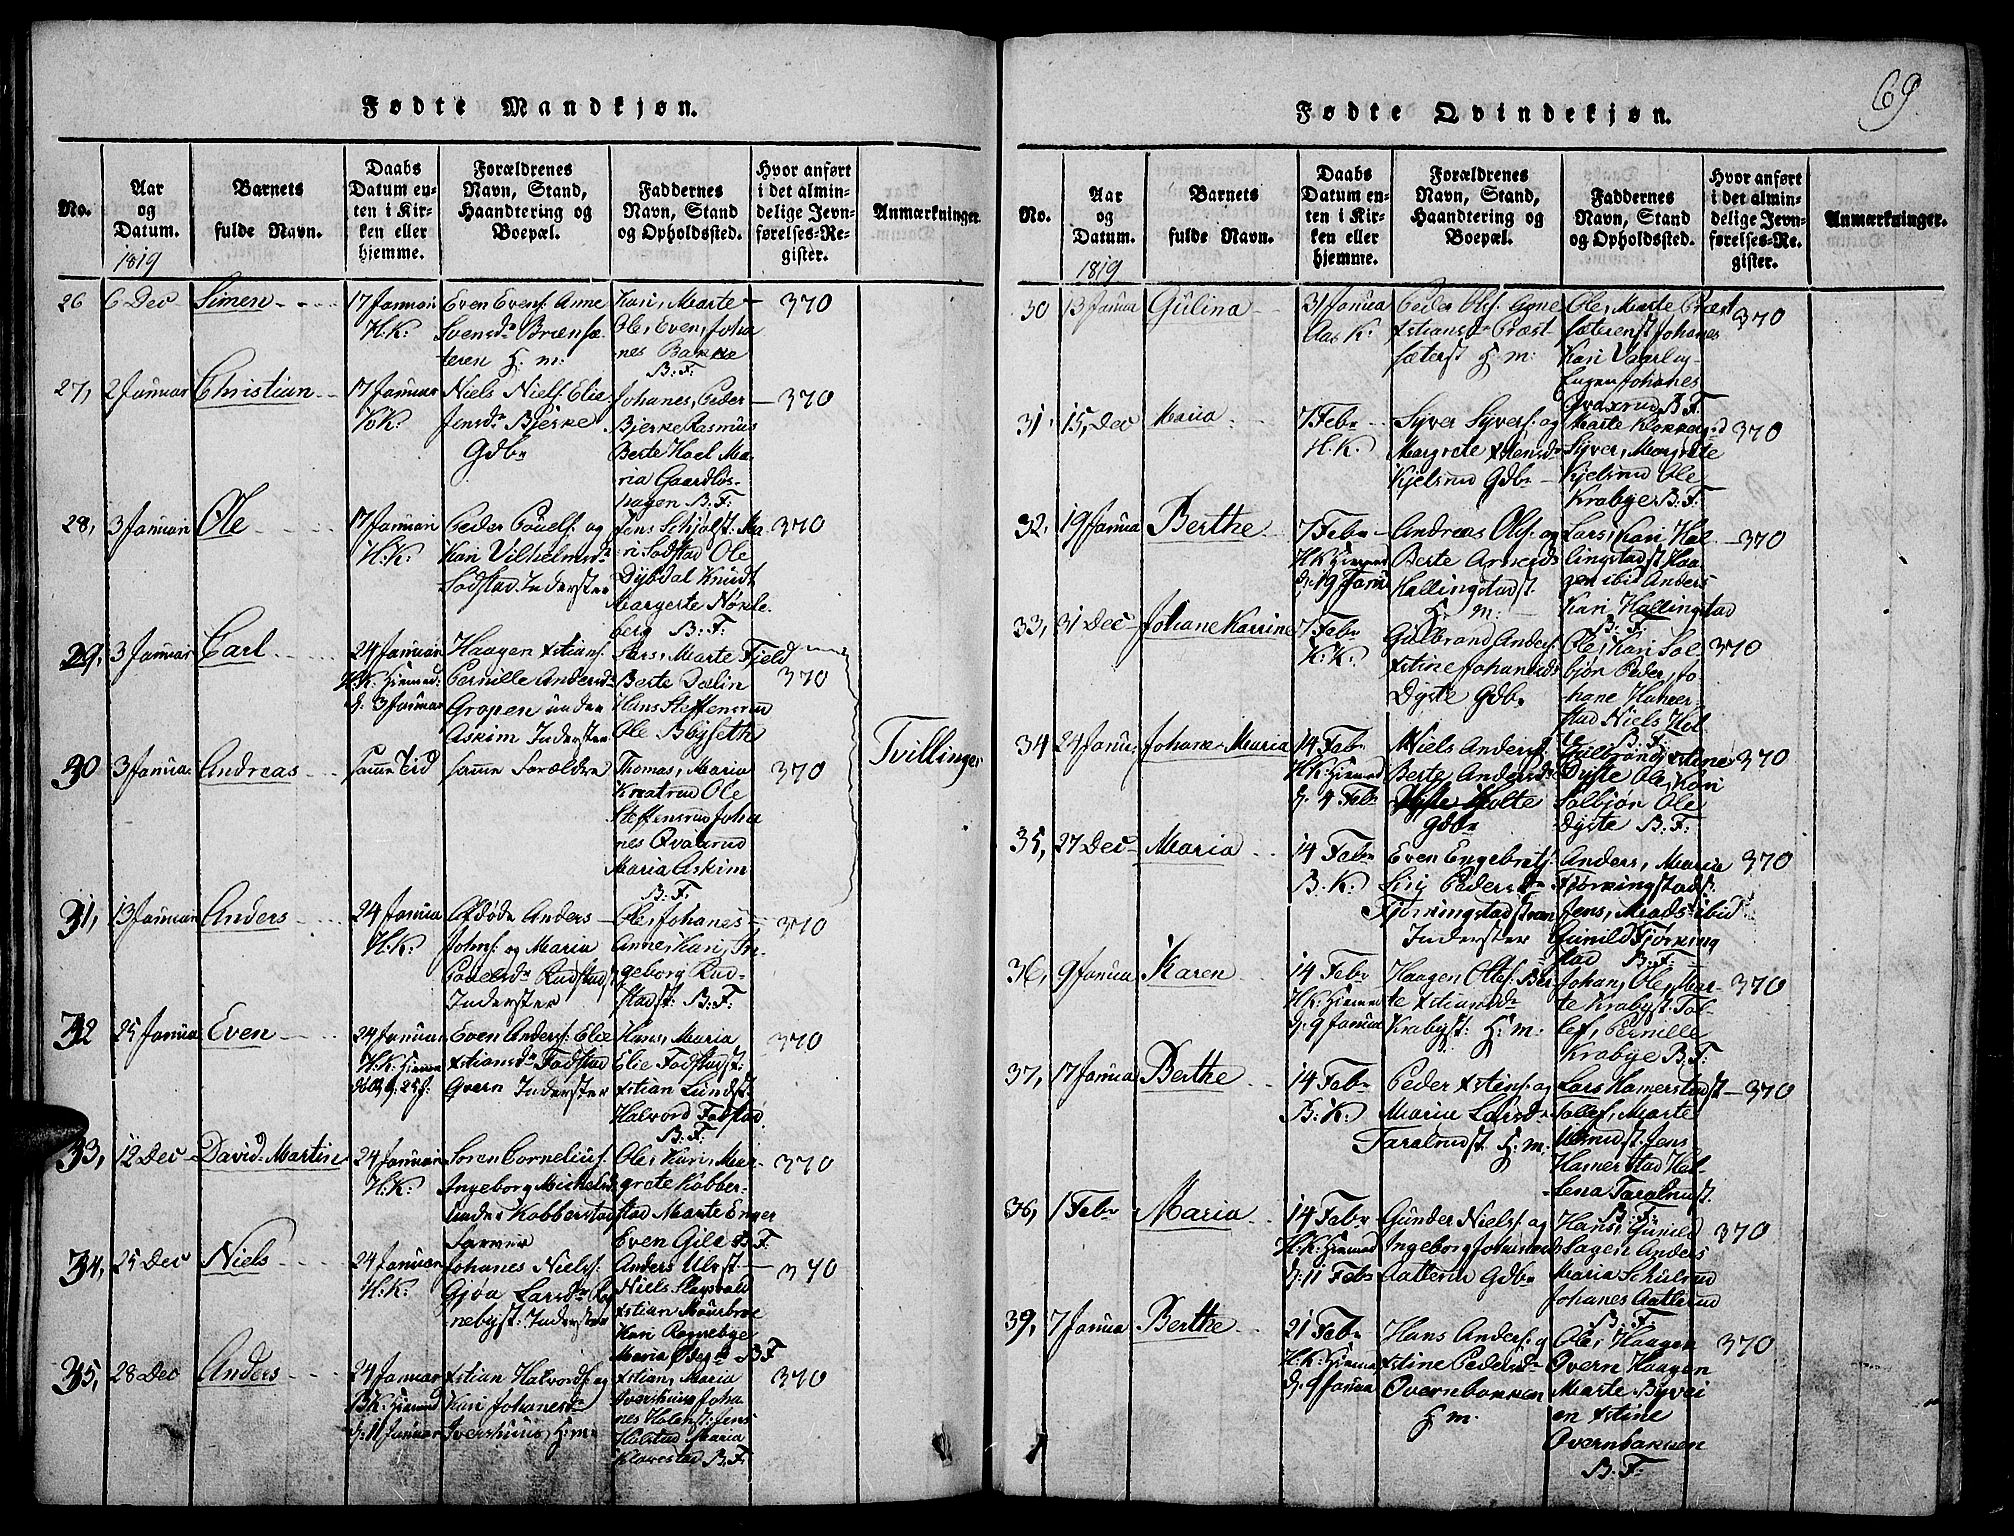 69
Fødte Mandkjøn.
No.
Aar
og
Datum.
1819
Barnets
fulde Navn.
Daabs
Datum en-
ten i Kir-
ken eller
hjemme.
Forældrenes
Navn, Stand,
Haandtering og
Boepæl.
Faddernes
Navn, Stand
og Opholdssted.
Hvor anført
i det almin-
delige Jevn-
førelses-Re-
gister.
Anmærkninger.
26 6 Dec Simen
17 Januari
H: K:
Even Evens: Anne
Svensd: Brænsæ-
teren H: m:
Kari, Marte
Ole, Even, Joha
nes Bakke
B: F:
370
27, 2 Januar Christian
17 Januar
K K:
Niels Niels: Elie
Jensd: Bjerke
Gdbr
Johanes, Peder
Bjerke Rasmus
Berte Hoel Ma-
ria Gaardløs-
hagen B: F:
370
28, 3 Januari Ole
17 Januari
H: K:
Peder Pouels: og
Kari Vilhelmsd:
Sodstad Inderster
Jens Schiølst: Ma-
ri Sodstad Ole
Dybdal Knudt
Margerte Nøkle-
berg B: F:
370
29, 3 Januar Carl
24 Januar
H: K: Hiemed:
d: 3 Januar
Haagen xstians:
Pernille Andersd:
Gropen under
Askim Inderster
Lars, Marte Fjeld
Berte Dælin
Hans Steffensrud
Ole Bbyseth
370
30 3 Janua: Andreas
samme Tid
samme Forældre
Thomas, Maria
Knatrud Ole
Steffensrud Joha
nes Qvaarud
Maria Askim
B: F:
370
Tvillinger
31, 13 Januar Anders
24 Janua
H: K:
Afdøde Anders
Johns: og Maria
Pouelsd: Rudstad
Inderster
Ole, Johanes
Anne, Kari, In-
geborg Rud-
stadst: B: F:
370
32 25 Janua Even
24 Januar
H: K: Hieme
Even Anders: Elie
xstiansd: Fodstad
Gvern Inderster
Hans, Maria
Elie Fodstadst:
xstian Lundst:
Halvord Fodstad
B: F:
370
33, 12 Dec David Martin
24 Januar
H: K:
Søren Cornelius:
Ingeborg Michelsd:
under Kobberstad
Farver
Ole, Kari, Mar-
grete Kobber-
stad Marte Enger
Even Gile B: F:
370
34, 25 Dec Niels
24 Januar
H: K:
Johanes Niels:
Gjøa Larsd: Rog
nebyst: Inderster
Anders Ulsst:
Niels Slagsvold
xstian Mourbroe
Kari Rognebye
Maria B F
370
35, 28 Dec Anders
24 Januar
B K: Hiemed
d: 11 Januar
xstian Halvords: og
Kari Johanesd:
Ivershuus H: m:
xstian, Maria
Ivershuus Joha
nes Holenst: Jens
Holstad Maria
Klovestad B: F:
370
Fødte Qvindekjøn.
No.
Aar
og
Datum.
1819
Barnets
fulde Navn.
Daabs
Datum en-
ten i Kir-
ken eller
hjemme.
Forældrenes
Navn, Stand,
Haandtering og
Boepæl.
Faddernes
Navn, Stand
og Opholdssted.
Hvor anført
i det almin-
delige Jevn-
førelses-Re-
gister.
Anmærkninger.
30 13 Janua Gulina
31 Janua
Aas K:
Peder Ols: Agne
xstiansd: Præst
sæterst H: m:
Ole, Marte Præst
sæterenst Johanes
Kari Vaarlag
Engen Johanes
Qvaxrud B: F:
370
31, 15, Dec Maria
7 Febr
H: K:
Syver Syvers: og
Margrete xstensd:
Kjelsrud Gdbr
Marte Klokkergrd
Syver, Margrete
Kjelsrud Ole
Krabye B: F:
370
32, 19 Janua Berthe
7 Febr
H: K: Hiemed
d: 19 Janu
Andreas Ols: og
Berte Arnesd:
Hallingstadst:
H: m:
Lars, Kari Hal-
lingstadst Haa
gen ibid Anders
Kari Hallingstad
B: F:
370
33, 31 Dec Johane Karine
7 Febr
K: K:
Gulbrand Anders:
xstine Johanesd:
Dyste Gdbr
Ole, Kari Sol-
bjør Peder, Jo
hane Hamer
stad Niels Hol
te B: F:
370
34 24 Janu: Johane Maria
14 Febr
H: K: Hiemed
d: 4 Febr
Niels Anders:
Berte Andersd:
Holte
Gdbr
Gulbrand, xstine
Dyste Ole, Kari
Solbjør Ole
Dyste B: F:
370
35, 27 Dec Maria
14 Febr
B. K:
Even Engebrets:
Siri Pedersd:
Fjørkingstadst van
Inderster
Anders, Maria
Fjørkingstadst:
Jens, Mads ibid
Gunild Fjørking
stad B: F:
370
36, 9 Janua Karen
14 Febr
H: K: Hiemed
d: 9 Janua
Haagen Oles: Ber
te xstiansd:
Krabyst: H: m:
Johan, Ole, Mar-
te Krabyst: Tol-
lef, Pernille
Krabye B: F:
370
37, 17 Janua Berthe
14 Febr
B: K:
Peder xstens: og
Maria Larsd:
Taralrudst H: m:
Lars Hamerstadst
Tollef, Marte
Ulsrudst: Jens
Hamerstad Hel-
lena Taralrudst.
B: F:
370
36, 1 Febr Maria
14 Febr
H: K: Hiemed
d: 11 Febr
Gunder Niels: og
Ingeborg Johanesd
Aatlerud Gdbr
Hans, Gunild
Sagen Anders
Maria Schulrud
Johanes Aatlerud
B: F:
370
39, 7 Janua Berthe
21 Febr
H: K: Hiemed
d: 9 Janua
Hans Anders: og
xstine Pedersd:
Overnbakken
H: m:
Ole, Haagen
Overn Haagen
Marte Byvei
en xstine
Overnbakken
B: F:
370